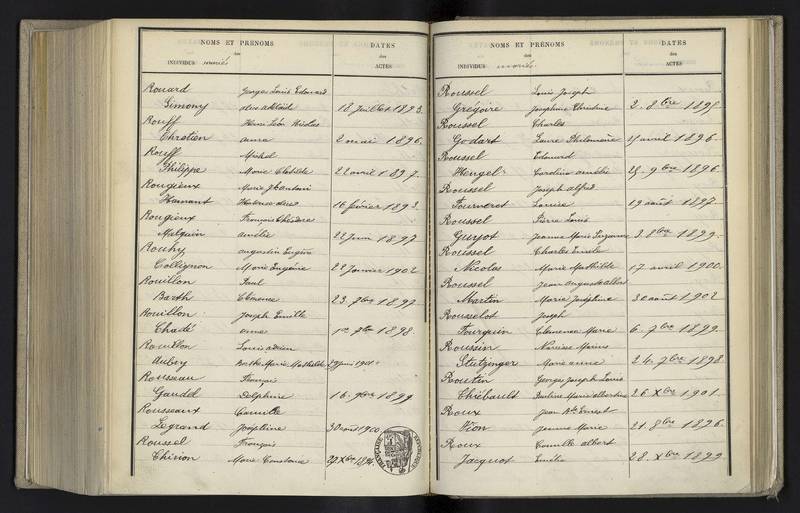 NOMS ET PRÉNOMS
des
INDIVIDUS mariés
DATES
des
ACTES
Rouard Georges Louis Edouard
Simony 18 Juillet 1893.
Rouff Henri Léon Nicolas
Chretien anna 2 mai 1896.
Rouff Michel
Philippe Marie Clotilde 22 avril 1897.
Rougieux Marie J
Hannant 16 février 1892.
Rougieux François Théodore
Malquin amélie 22 Juin 1897
Rouhy augustin Eugène
Collignon Marie Eugénie 22 Janvier 1902
Rouillon Paul
Barth Clémence 23. 1897
Rouillon Joseph Emille
Chadé anna 1er 1898.
Rouillon Louis adrien
Aubry Berthe Marie Mathilde 1901
Rousseau François
Gaudel Delphine 16. 9bre 1899
Rousseaux Camille
Legrand Joséphine 30 août 1900.
Roussel François
Chirion Marie Constance 29 Xbre 1894.
NOMS ET PRÉNOMS
des
INDIVIDUS mariés.
DATES
des
ACTES
Roussel Louis Joseph
Grégoire Joséphine Christine 2. 8bre 1895.
Roussel Charles
Godart Laure Philomène avril 1896.
Roussel Edouard
Hengel Caroline amélie 25. 9bre 1896
Roussel Joseph alfred
Fourneret Louise 19 août 1897.
Roussel Pierre Louis
Guyot Jeanne Marie Suzanne 3 8bre 1899.
Roussel Charles Emile
Nicolas Marie Mathilde 17 avril 1900.
Roussel Jean Auguste albert
Martin Marie Joséphine 30 août 1902
Rousselot Joseph
Fourquin Clémence Marie 6. 7bre 1899.
Roussin Narcisse
Stutzinger Marie anna 24. 7bre 1898.
Routin Georges Joseph Louis
Thiébault Pauline Marie albertine 26 Xbre 1901.
Roux Jean Bte Ernest
Vion Jeanne Marie 21. 8bre 1896.
Roux Camille albert
Jacquot Emélie 28. Xbre 1899